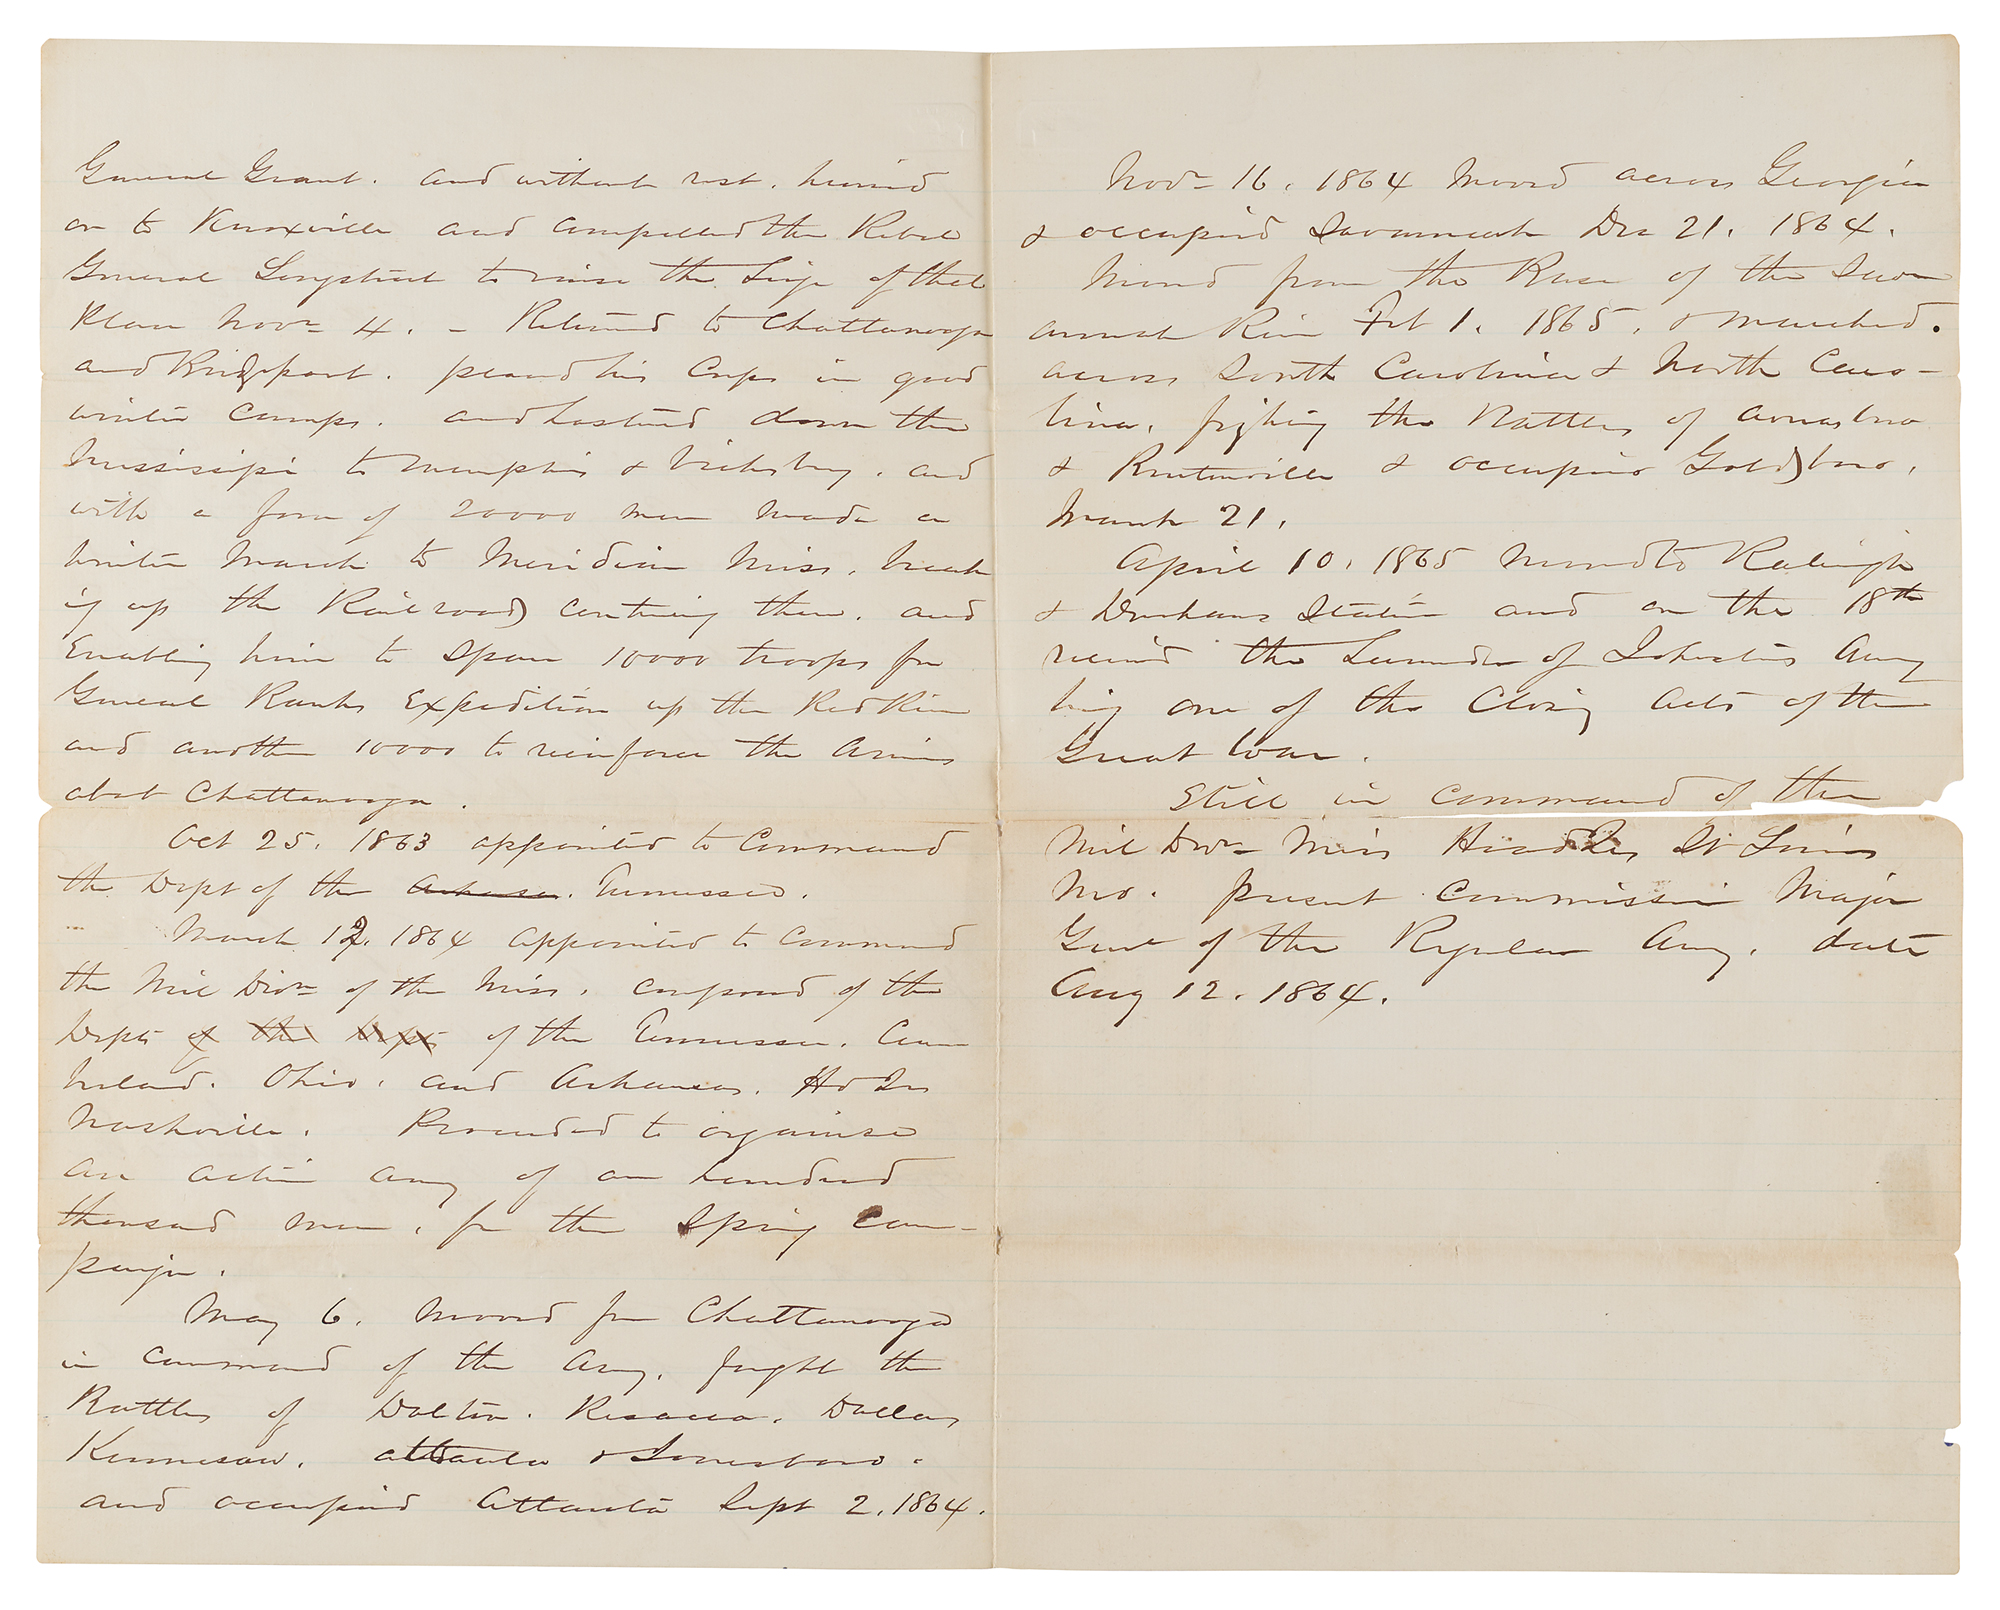 General Grant. and without rest, hurried
on to Knoxville and compelled the Rebel
General Longstreet to raise the Siege of that
Place Novr 4. - Returned to Chattanooga
and Bridgeport. placed his Corps in good
winter camps. and hastened down the
Mississippi to Memphis & Vicksburg, and
with a force of 20000 men made a
winter March to Meridian Miss, break
ig up the Railroads centering there. and
Enabling him to spare 10000 troops for
General Banks Expedition up the Red River
and another 10000 to reinforce the Armies
about Chattanooga.
Oct 25. 1863 appointed to Command
the Dept of the Arkansas. Tennessee.
March 12, 1864 appointed to command
the Mil Divn of the Miss, composed of the
Depts of the Depts of the Tennessee, Cum
berland. Ohio, and Arkansas. Hd Qrs
Nashville. Proceeded to organise
an active army of one hundred
thousand men, for the Spring Cam-
paign.
May 6. Moved from Chattanooga
in command of the Army, fought the
Battles of Dalton. Resacca. Dallas
Kennesaw. Atlanta & Jonesboro.
and occupied Atlanta Sept 2, 1864.
Novr 16, 1864 Moved across Georgia
& occupied Savannah Dec 21, 1864.
Moved from the Base of the Sav
annah River Feb 1, 1865, & marched
across South Carolina & North Caro-
lina, fighting the Battles of Averasboro
& Bentonville & occupied Goldsboro,
March 21,
April 10, 1865 Moved to Raleigh
& Durhams Station and on the 18th
received the Surrender of Johnstons Army
being one of the Closing Acts of the
Great War.
Still in command of the
Mil Divn Miss Head Qrs St Louis
Mo. present Commission Major
Genl of the Regular Army, date
Aug 12, 1864.